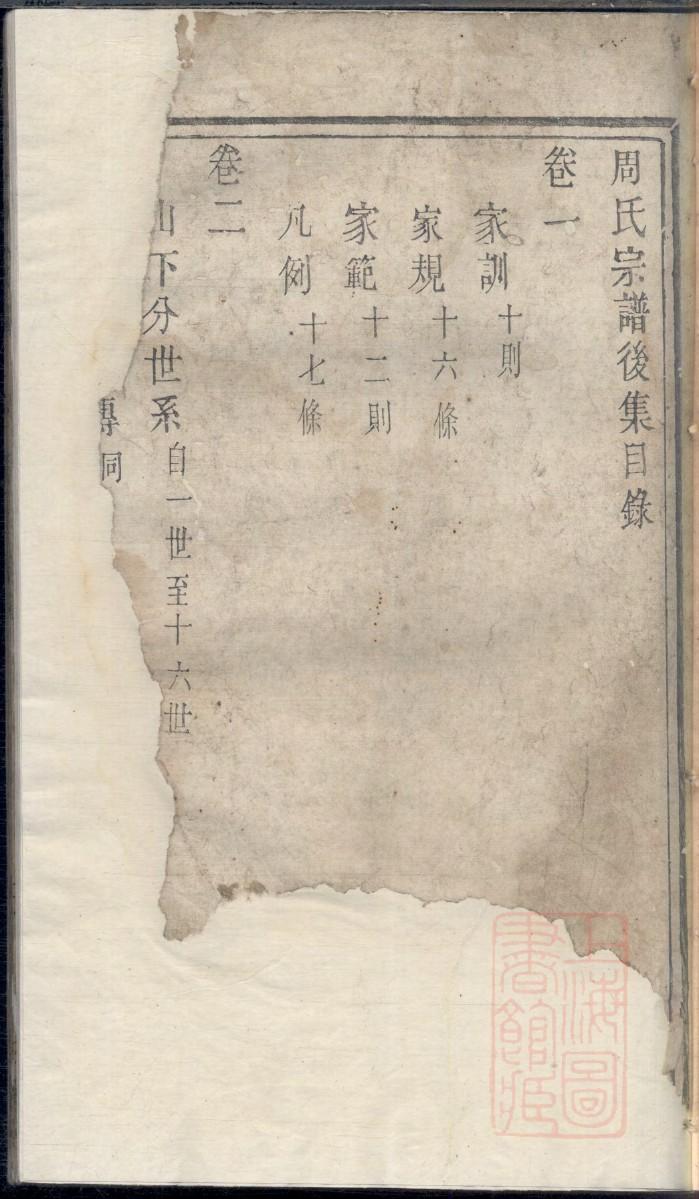 周氏宗譜後集目錄
卷一
家訓十則
家規十六條
家範十二則
凡例十七條
卷二
山下分世系自一世至十六世
傳同
上海圖書館藏